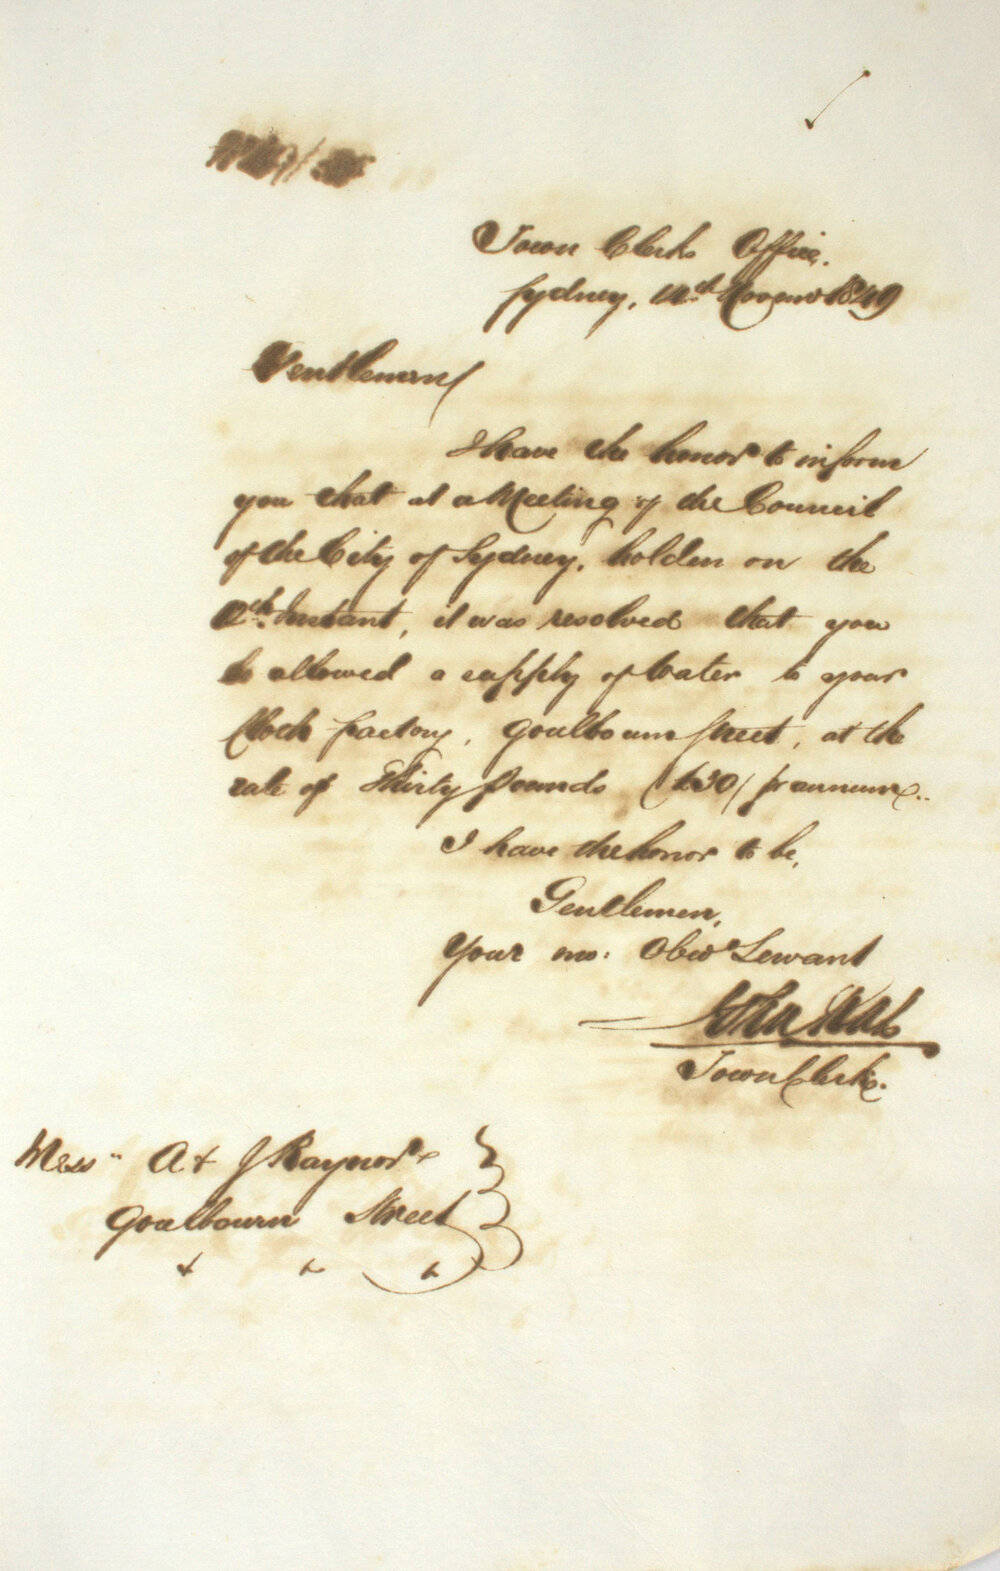 Town Clerks Office.
Sydney, 14th Novemr 1849
Gentlemen/
I have the honor to inform
you that at a Meeting of the Council
of the City of Sydney, holden on the
12th Instant, it was resolved that you
be allowed a supply of Water to your
Cloth factory, Goulbourn Street, at the
rate of Thirty pounds (£30/ pr annum.
I have the honor to be,
Gentlemen,
Your mo: Obedt Servant
Town Clerk.
Messrs A & J Raynor
Goulbourn Street